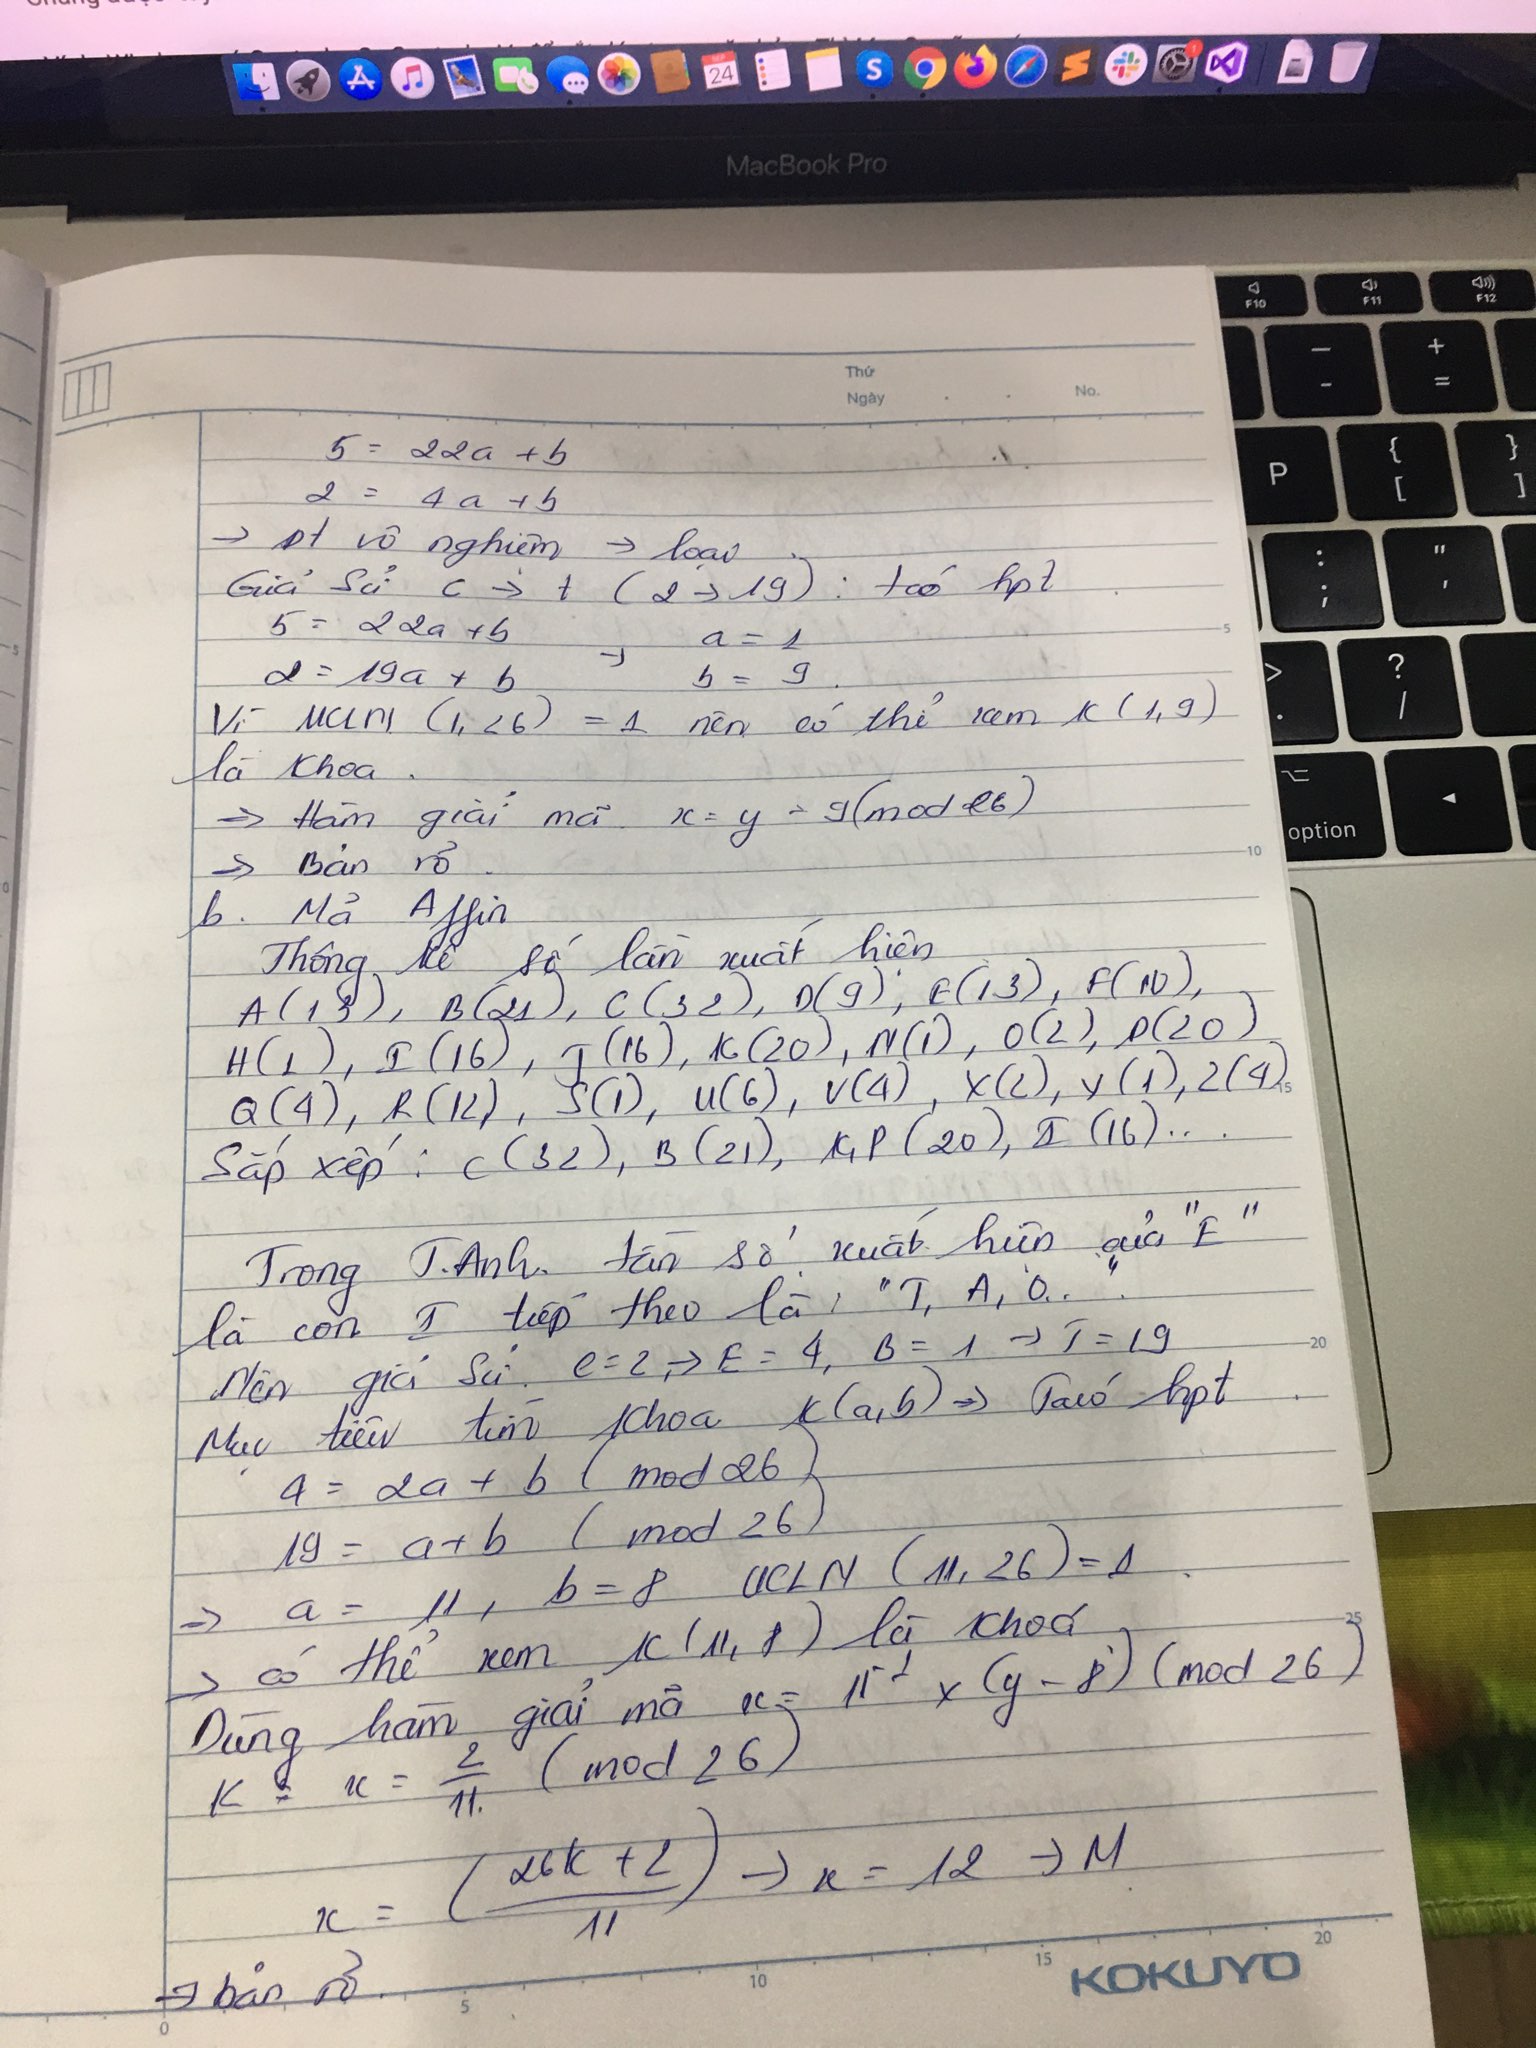 SEP
24
1
MacBook Pro
F10
F11
F12
Thứ
Ngày
No.
– -
+ =
P
{ [
} ]
: ;
" '
>
.
? /
option
5 = 22a + b
2 = 4a + b
→ pt vô nghiệm → loại.
Giả sử c → t (2 → 19) : ta có hpt
5 = 22a + b → a = 1
2 = 19a + b b = 9.
Vì UCLN (1, 26) = 1 nên có thể xem K(1, 9)
là khoa.
⇒ Hàm giải mã x = y - 9 (mod 26)
⇒ Bản rõ.
b. Mã Affin
Thống kê số lần xuất hiện
A(13), B(21), C(32), D(9), E(13), F(10),
H(1), I(16), J(16), K(20), N(1), O(2), P(20)
Q(4), R(12), S(1), U(6), V(4), X(2), Y(1), Z(4)
Sắp xếp : C(32), B(21), K,P(20), I(16)...
Trong T.Anh. tần số xuất hiện của "E"
là con I tiếp theo là : "T, A, O.."
Nên giả sử. C=2 → E = 4, B = 1 → T = 19
Mục tiêu tìm khoa K(a,b) ⇒ Ta có hpt
4 = 2a + b (mod 26)
19 = a+b (mod 26)
⇒ a = 11, b = 8 UCLN (11, 26) = 1.
→ có thể xem K(11, 8) là khoá
Dùng hàm giải mã x = 11⁻¹ x (y - 8) (mod 26)
K = x = 2/11. (mod 26)
x = (26k + 2 / 11) → x = 12 → M
⇒ bản rõ.
5
10
15
20
25
0
5
10
15
20
KOKUYO